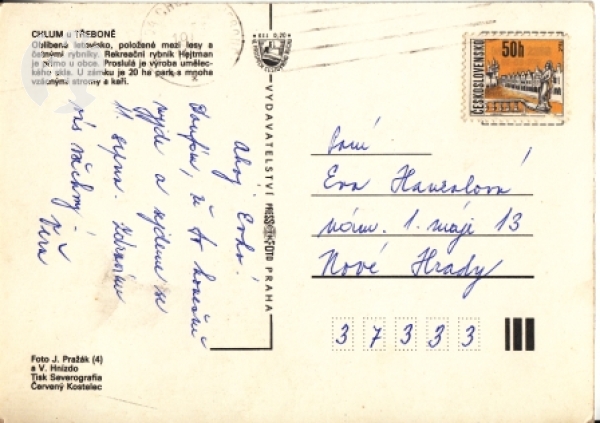 CHLUM u TŘEBONĚ
Oblíbené letovisko, položené mezi lesy a
četnými rybníky. Rekreační rybník Hejtman
je přímo u obce. Proslulá je výroba umělec-
kého skla. U zámku je 20 ha park s mnoha
vzácnými stromy a keři.
Ahoj Evko!
Doufám, že to konečně
vyjde a sejdeme se
11. srpna. Zdravím
vás všechny!
Věra
Foto J. Pražák (4)
a V. Hnízdo
Tisk Severografia
Červený Kostelec
VYDAVATELSTVÍ PRESSFOTO PRAHA
ČESKOSLOVENSKO
50h
Paní
Eva
nám. 1. máje 13
Nové Hrady
3 7 3 3 3